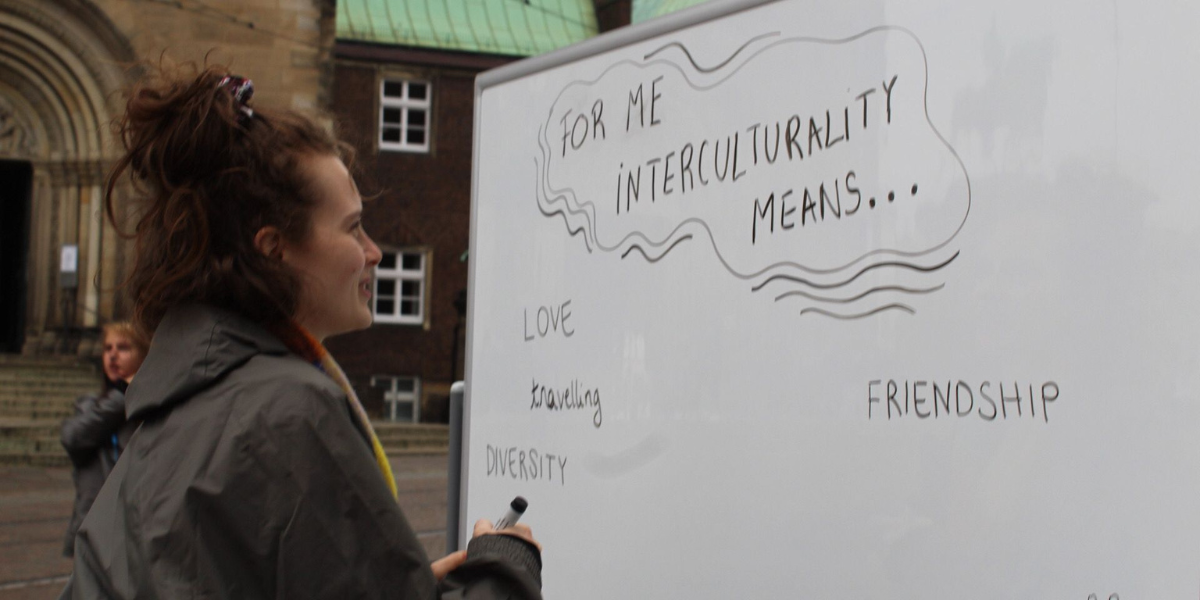 FOR ME
INTERCULTURALITY
MEANS...
LOVE
travelling
FRIENDSHIP
DIVERSITY